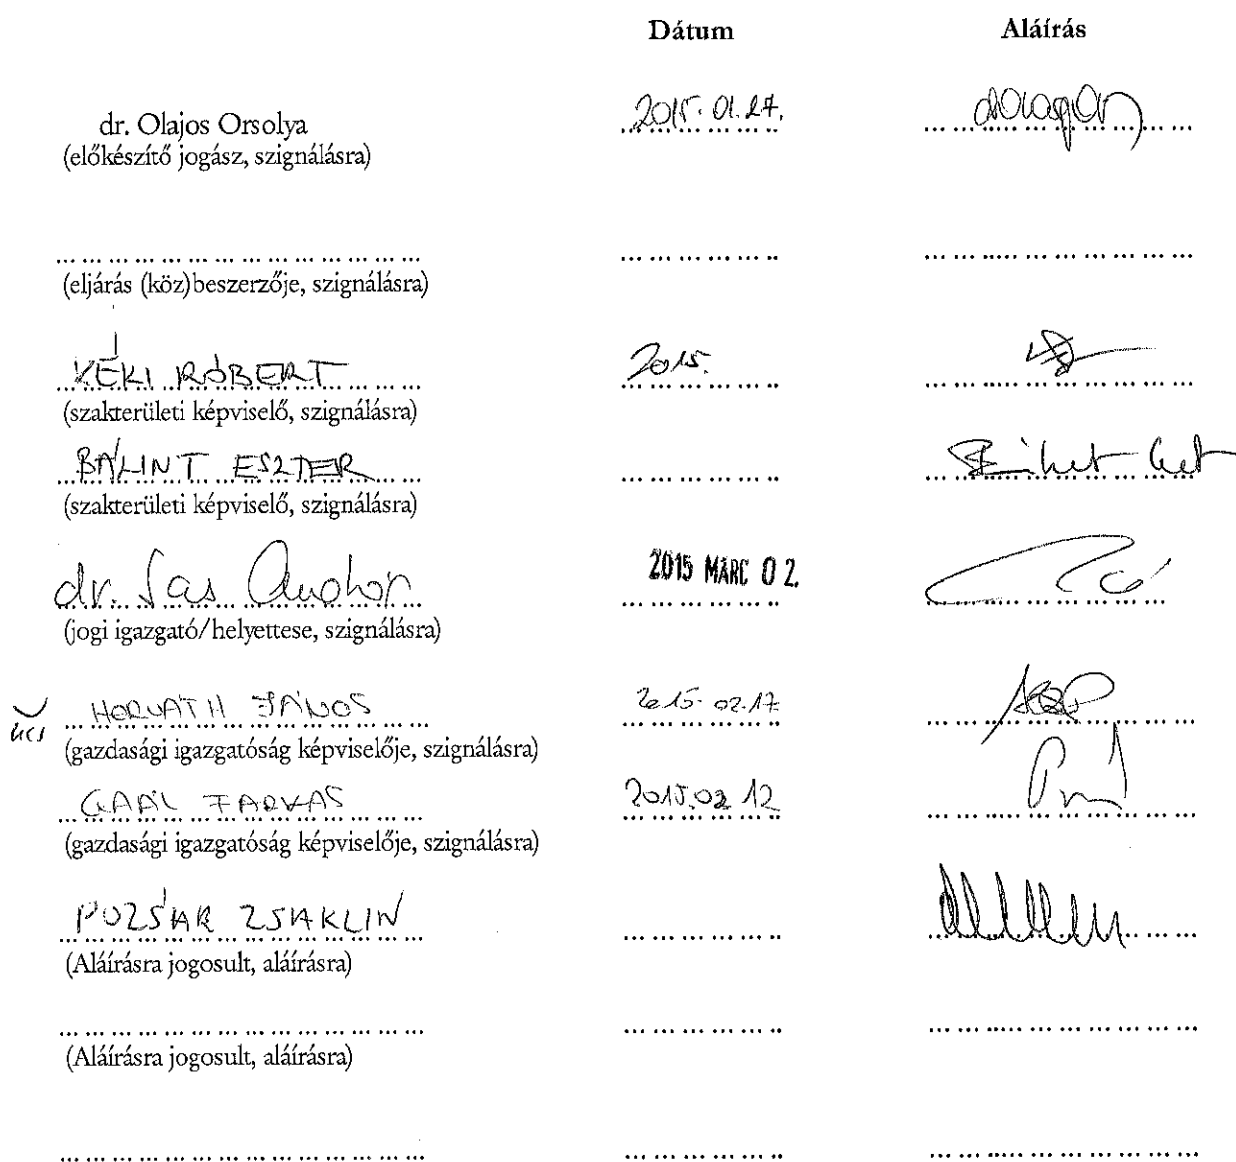 Dátum Aláírás
dr. Olajos Orsolya 2015. 01. 27.
(előkészítő jogász, szignálásra)
... ... ... ... ... ... ... ... ... ... ... ... ... ... ... ... ... ... .. ... ... ..... ... ... ... ... ... ...
(eljárás (köz)beszerzője, szignálásra)
KÉKI RÓBERT 2015.
(szakterületi képviselő, szignálásra)
BÁLINT ESZTER
(szakterületi képviselő, szignálásra)
dr. Sas 2015 MÁRC 0 2.
(jogi igazgató/helyettese, szignálásra)
HORVÁTH JÁNOS 2015. 02.17.
(gazdasági igazgatóság képviselője, szignálásra)
GAÁL FARKAS 2015.02 12
(gazdasági igazgatóság képviselője, szignálásra)
POZSÁR ZSAKLIN
(Aláírásra jogosult, aláírásra)
... ... ... ... ... ... ... ... ... ... ... ... ... ... ... ... ... ... .. ... ... ..... ... ... ... ... ... ...
(Aláírásra jogosult, aláírásra)
... ... ... ... ... ... ... ... ... ... ... ... ... ... ... ... ... ... .. ... ... ..... ... ... ... ... ... ...